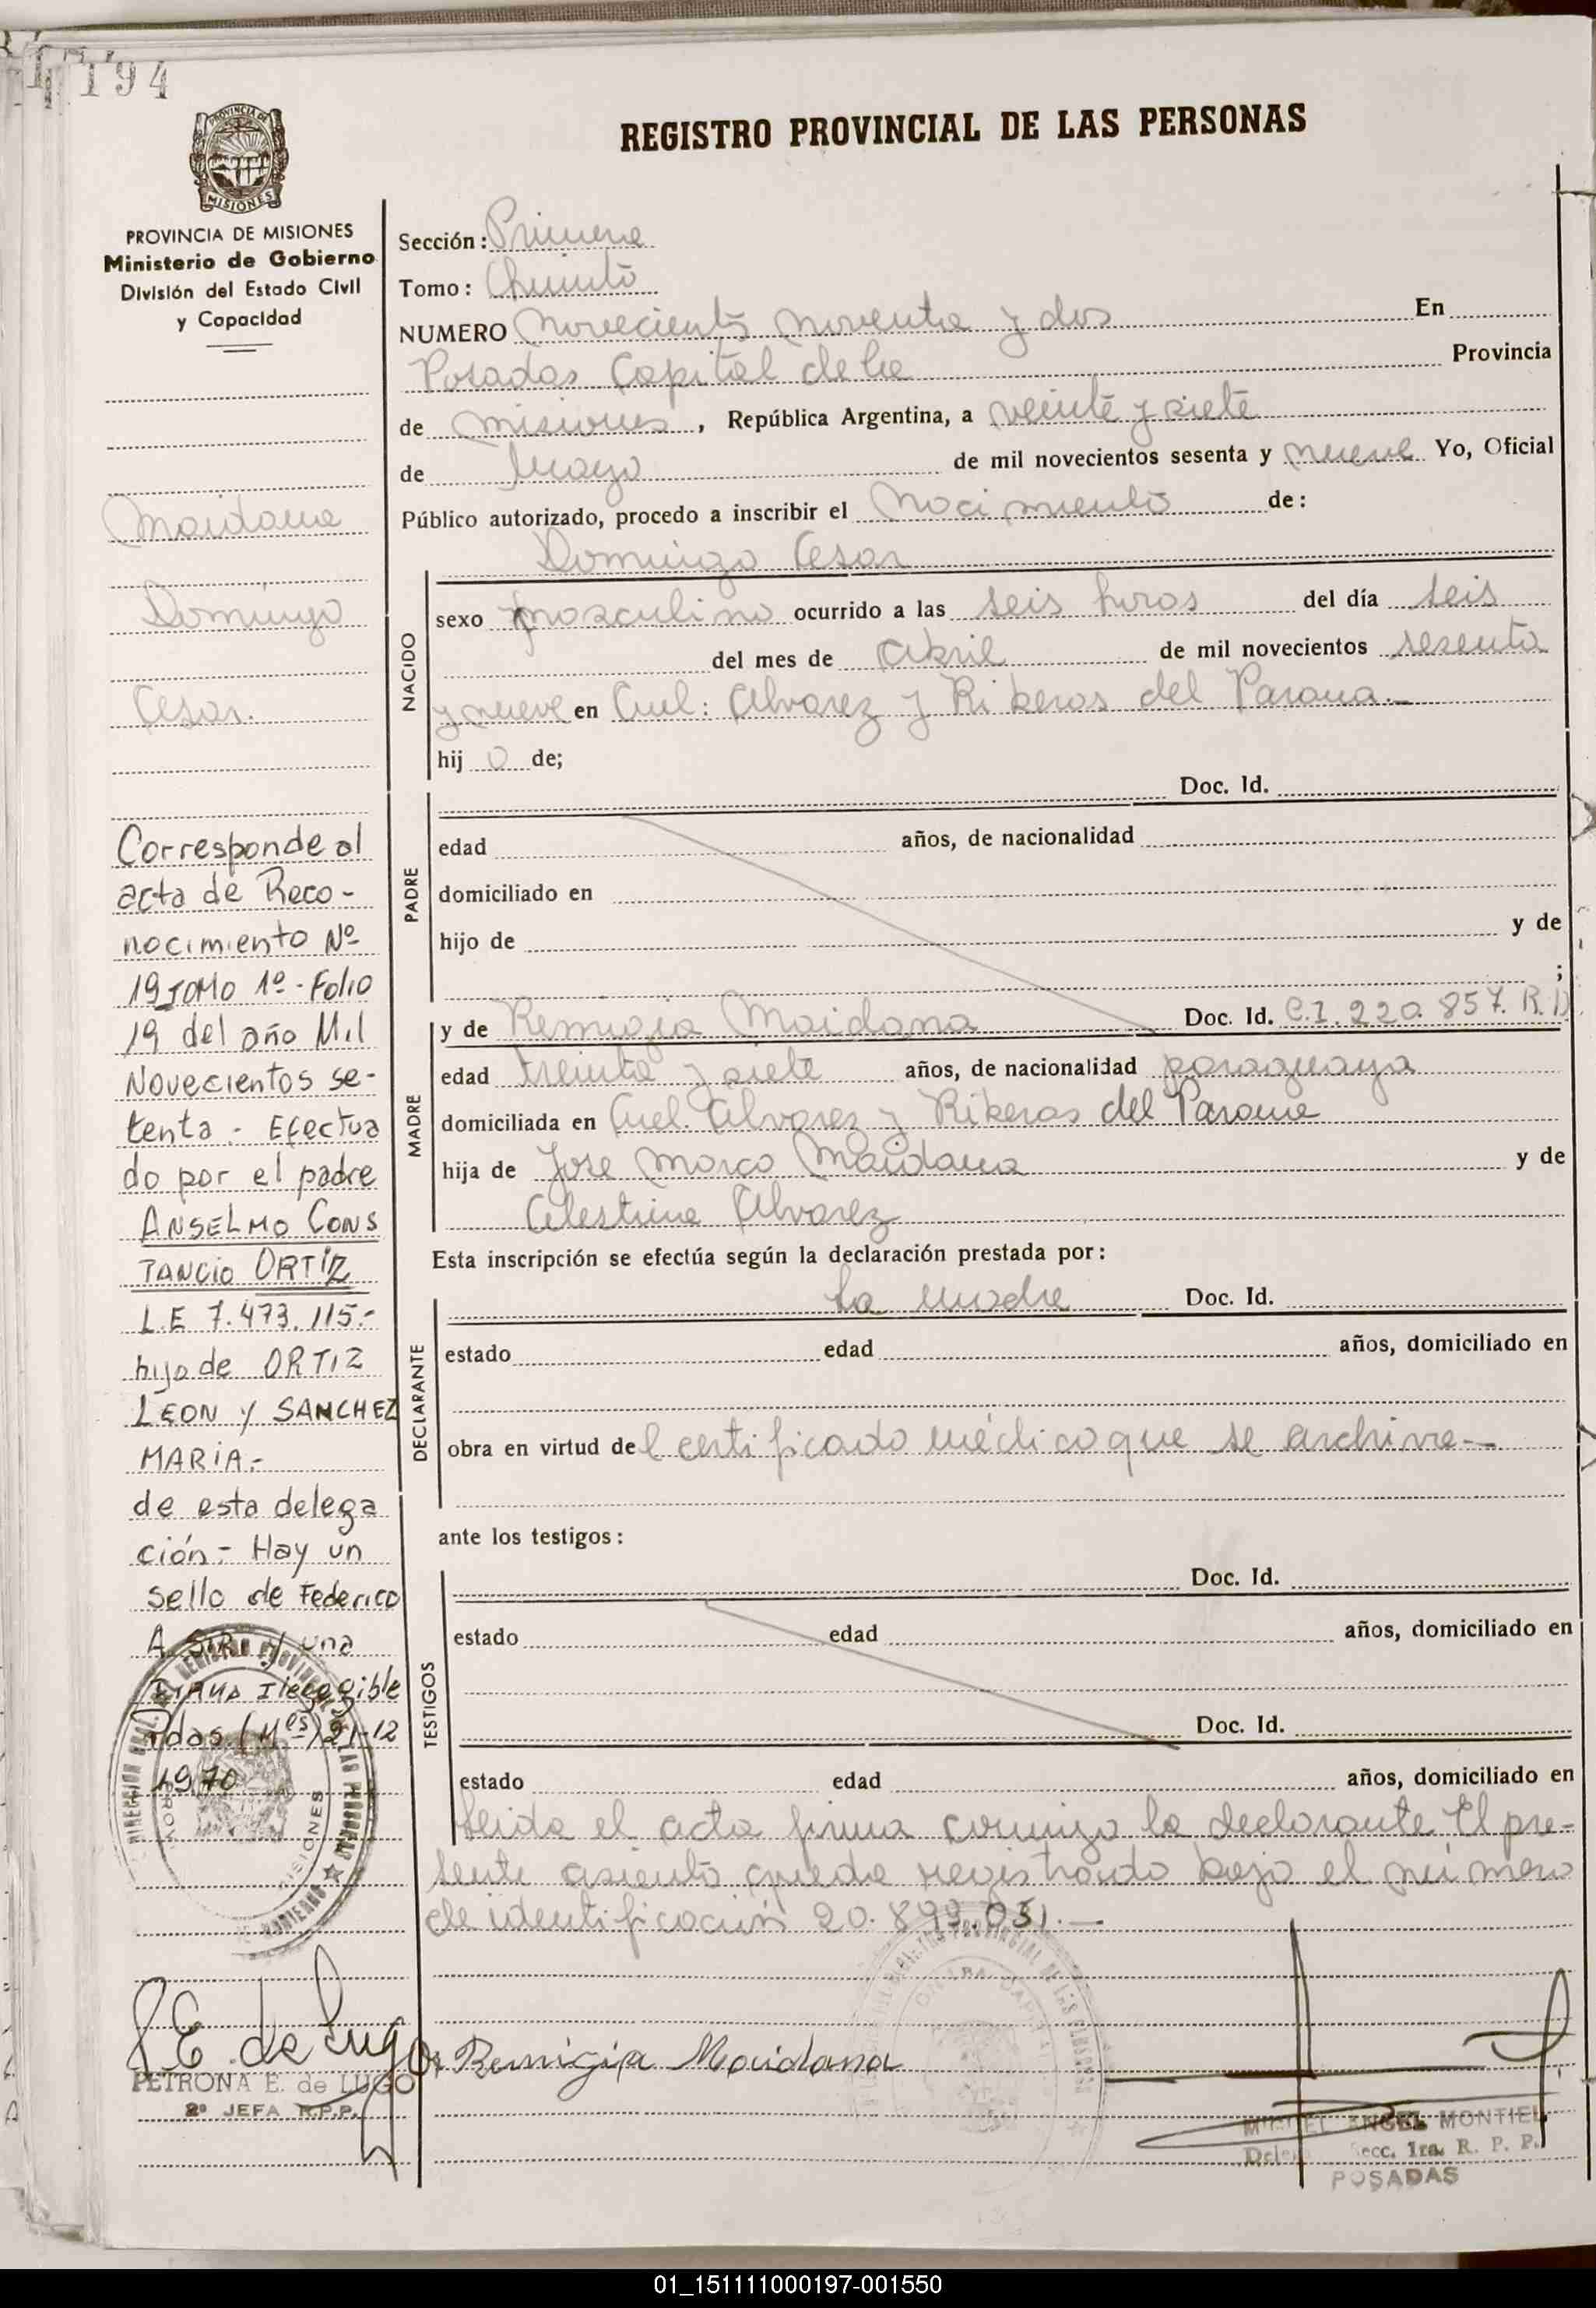 194
REGISTRO PROVINCIAL DE LAS PERSONAS
MISIONES
PROVINCIA DE MISIONES
Ministerio de Gobierno
División del Estado Civil
y Capacidad
Sección: Primera
Tomo: Quinto
NUMERO Novecientos noventa y dos En
Posadas Capital de la Provincia
de Misiones, República Argentina, a veinte y siete
de Mayo de mil novecientos sesenta y nueve Yo, Oficial
Público autorizado, procedo a inscribir el Nacimiento de:
Domingo Cesar
NACIDO
sexo masculino ocurrido a las seis horas del día seis
del mes de Abril de mil novecientos sesenta
y nueve en Cnel: Alvarez y Riberas del Parana.-
hij o de;
PADRE
Doc. Id.
edad años, de nacionalidad
domiciliado en
hijo de y de
;
MADRE
y de Remigia Maidana Doc. Id. C.I. 220.857. R.P
edad treinta y siete años, de nacionalidad paraguaya
domiciliada en Cnel. Alvarez y Riberas del Parana
hija de Jose Marco Maidana y de
Celestina Alvarez
Esta inscripción se efectúa según la declaración prestada por:
DECLARANTE
La madre Doc. Id.
estado edad años, domiciliado en
obra en virtud del certificado médico que se archiva-
ante los testigos:
TESTIGOS
Doc. Id.
estado edad años, domiciliado en
Doc. Id.
estado edad años, domiciliado en
Leida el acta firma conmigo la declarante El pre-
sente asiento queda registrado bajo el número
de identificación 20.899.031.-
Remigia Maidana
MIGUEL ANGEL MONTIEL
Secc. 1ra. R. P. P.
POSADAS
Maidana
Domingo
Cesar.
Corresponde al
acta de Reco-
nocimiento Nº
19 TOMO 1º - Folio
19 del año Mil
Novecientos se-
tenta - Efectua
do por el padre
ANSELMO CONS
TANCIO ORTIZ
L.E 7.473.115.-
hijo de ORTIZ
LEON Y SANCHEZ
MARIA.-
de esta delega
ción.- Hay un
sello de Federico
A SIRI y una
FIRMA Ilegegible
Pdas. (Mes) 21-12
1970
P E. de Lugo
PETRONA E. de LUGO
2º JEFA R.P.P.
01_151111000197-001550